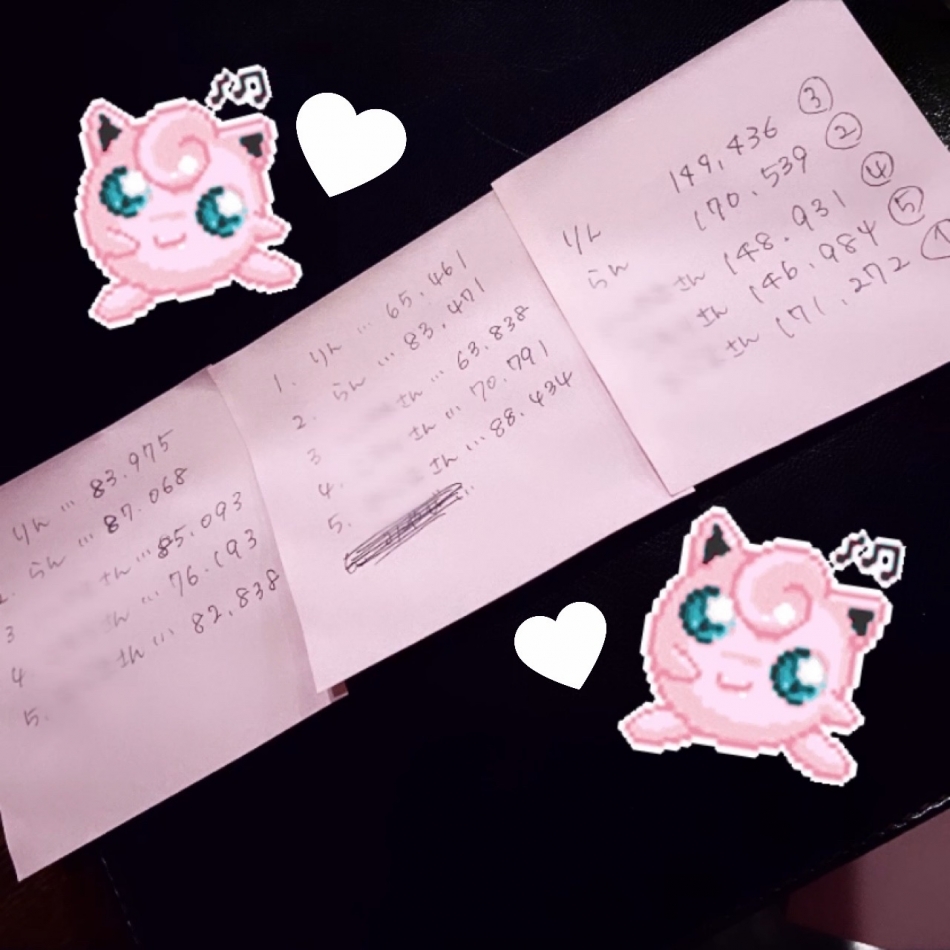 りん … 83.975
2. らん … 87.068
3 さん … 85.093
4 さん … 76.193
5. さん … 82.838
1. りん … 65.461
2. らん … 83.471
3 さん … 63.838
4. さん … 70.791
5. さん … 88.434
りん 149,436 ③
らん 170.539 ②
さん 148.931 ④
さん 146.984 ⑤
さん 171.272 ①